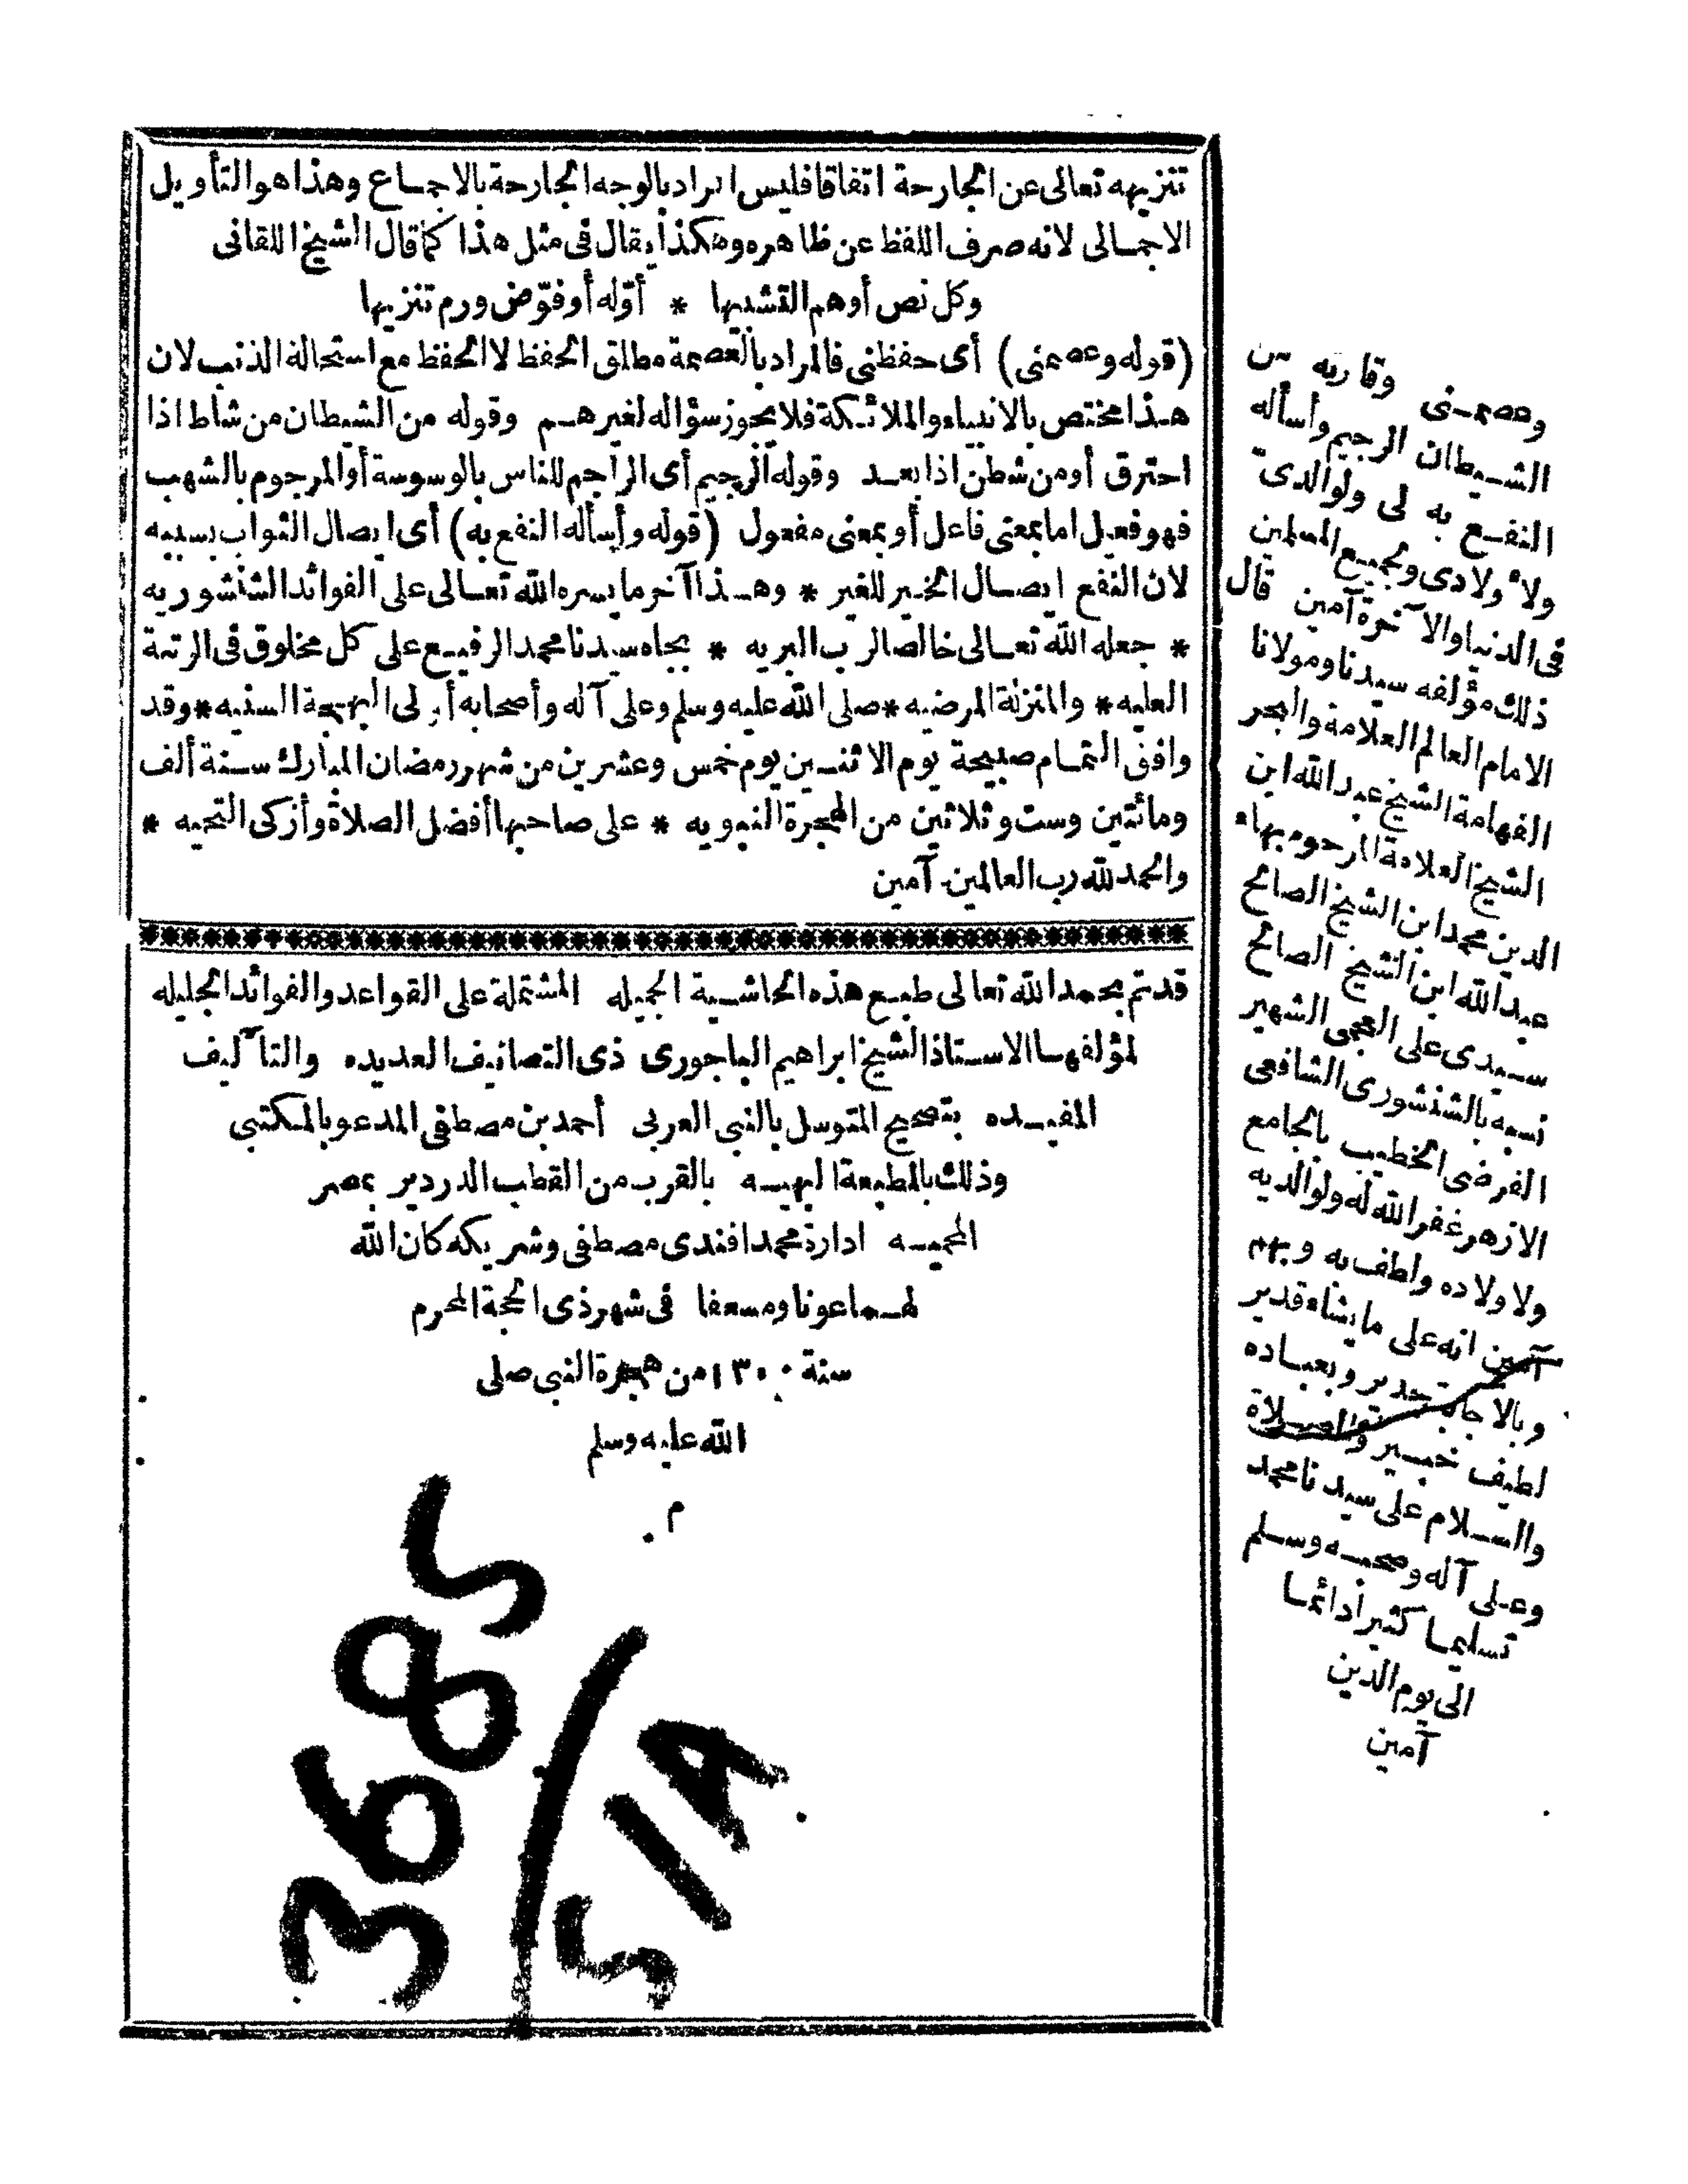 تنزيهه تعالى عن الجارحة اتفاقا فليس المراد بالوجه الجارحة بالاجماع وهذا هو التأويل
الاجمالى لانه صرف اللفظ عن ظاهره وهكذا يقال فى مثل هذا كما قال الشيخ اللقانى
وكل نص أوهم التشبيها * أوّله أو فوّض ورم تنزيها
(قوله وعصمنى) أى حفظنى فالمراد بالعصمة مطلق الحفظ لا الحفظ مع استحالة الذنب لان
هذا مختص بالانبياء والملائكة فلا يجوز سؤاله لغيرهم وقوله من الشيطان من شاط اذا
احترق أو من شطن اذا بعد وقوله الرجيم أى الراجم للناس بالوسوسة أو المرجوم بالشهب
فهو فعيل اما بمعنى فاعل أو بمعنى مفعول (قوله وأسأله النفع به) أى ايصال الثواب بسببه
لان النفع ايصال الخير للغير * وهذا آخر ما يسره الله تعالى على الفوائد الشنشوريه
* جعله الله تعالى خالصا لرب البريه * بجاه سيدنا محمد الرفيع على كل مخلوق فى الرتبة
العليه * والمنزلة المرضيه * صلى الله عليه وسلم وعلى آله وأصحابه أولى البهجة السنيه * وقد
وافق التمام صبيحة يوم الاثنين يوم خمس وعشرين من شهر رمضان المبارك سنة ألف
ومائتين وست وثلاثين من الهجرة النبويه * على صاحبها أفضل الصلاة وأزكى التحيه *
والحمد لله رب العالمين آمين
قد تم بحمد الله تعالى طبع هذه الحاشية الجميله المشتملة على القواعد والفوائد الجليله
لمؤلفها الاستاذ الشيخ ابراهيم الباجورى ذى التصانيف العديده والتآليف
المفيده بتصحيح المتوسل بالنبى العربى أحمد بن مصطفى المدعو بالمكتبى
وذلك بالمطبعة البهيه بالقرب من القطب الدردير بمصر
المحميه ادارة محمد افندى مصطفى وشريكه كان الله
لهما عونا ومسعفا فى شهر ذى الحجة المحرم
سنة ١٣٠٠ من هجرة النبى صلى
الله عليه وسلم
م
وعصمنى وقاريه من
الشيطان الرجيم وأسأله
النفع به لى ولوالدىّ
ولأولادى ولجميع المسلمين
فى الدنيا والآخرة آمين قال
ذلك مؤلفه سيدنا ومولانا
الامام العالم العلامة والبحر
الفهامة الشيخ عبد الله ابن
الشيخ العلامة المرحوم بهاء
الدين محمد ابن الشيخ الصالح
عبد الله ابن الشيخ الصالح
سيدى على العجمى الشهير
نسبه بالشنشورى الشافعى
الفرضى الخطيب بالجامع
الازهر غفر الله له ولوالديه
ولاولاده ولطف به وبهم
آمين انه على ما يشاء قدير
وبالاجابة جدير وبعباده
لطيف خبير والصلاة
والسلام على سيدنا محمد
وعلى آله وصحبه وسلم
تسليما كثيرا دائما
الى يوم الدين
آمين
3685
/
518